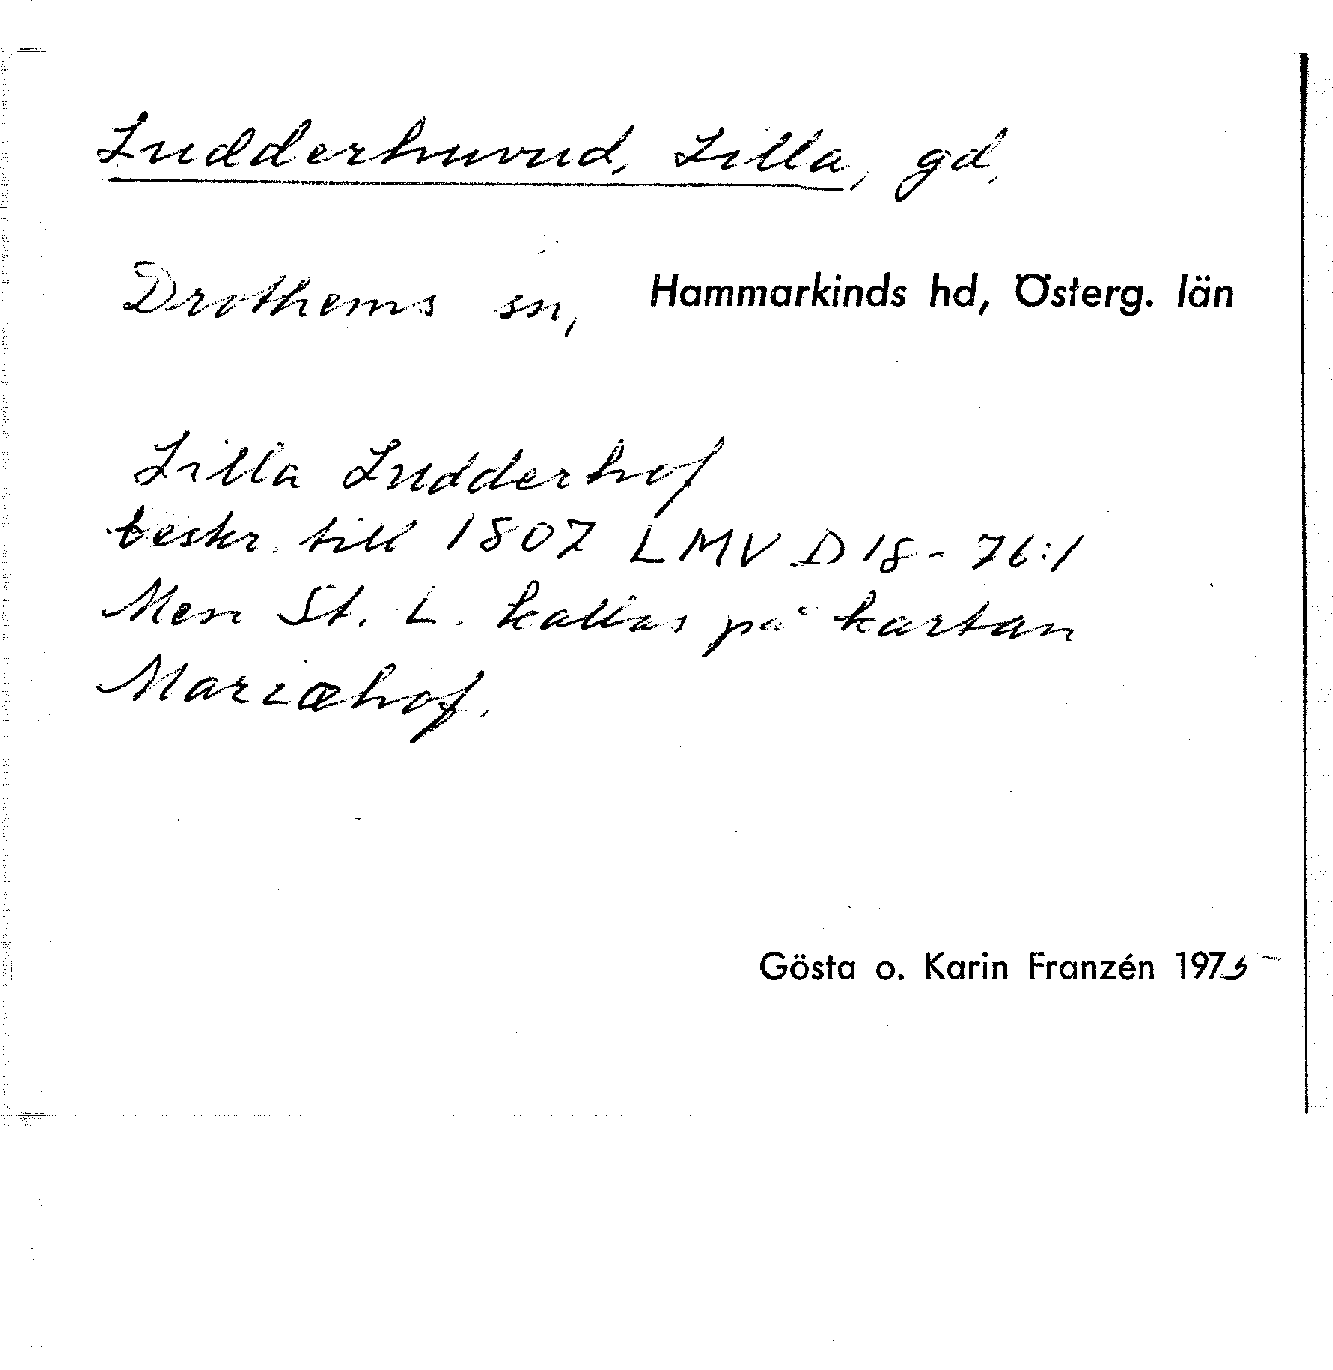 Ludderhuvud, Lilla, gd,
Drothems sn, Hammarkinds hd, Österg. län
Lilla Ludderhof
beskr. till 1807 LMV D 18-76:1
Men St. L. kallas på kartan
Mariæhof.
Gösta o. Karin Franzén 1975